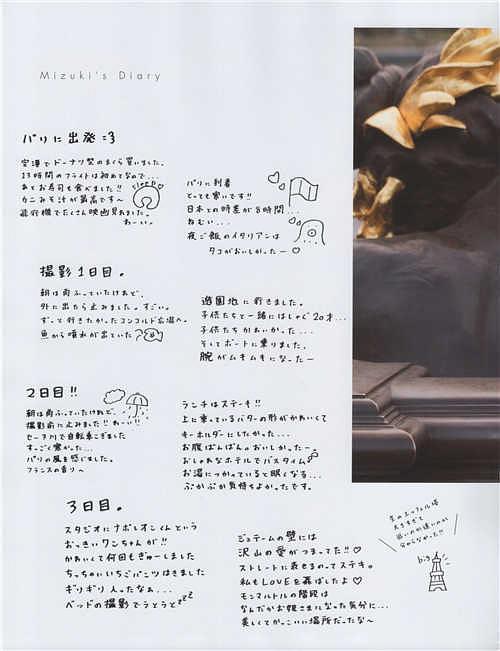 Mizuki's Diary
パリに出発 =3
空港でドーナツ型のまくら買いました。
13時間のフライトは初めてなので...
あとお寿司も食べました!!
カニみそ汁が最高です〜
飛行機でたくさん映画見れました。
わーい。
sleep
パリに到着
とっても寒いです!!
日本との時差が8時間...
ねむい...
夜ご飯のイタリアンは
タコがおいしかったー♡
撮影1日目。
朝は雨ふっていたけれど、
外に出たら止みました。すごい。
ずーっと行きたかったコンコルド広場へ。
魚から噴水が出ていた
遊園地に行きました。
子供たちと一緒にはしゃぐ20才...
子供たちかわいかった...
そしてボートに乗りました。
腕がムキムキになったー
2日目!!
朝は雨ふっていたけれど、
撮影前に止みました!!わーい!!
セーヌ川で自転車こぎました
すっごく寒かった...
パリの風を感じました。
フランスの香り〜
ランチはステーキ!!
上に乗っているバターの形がかわいくて
キーホルダーにしたかった...
お腹ぱんぱん。おいしかったー。
おしゃれなホテルでバスタイム
お湯につかっていると眠くなる...
ぷかぷか気持ちよかったです。
3日目。
スタジオにナポレオンくんという
おっきいワンちゃんが!!
かわいくて何回もぎゅーしました
ちっちゃいいちごパンツはきました
ギリギリ入ったなぁ...
ベッドの撮影でうとうとzzz
ジュテームの壁には
沢山の愛がつまってた!!♡
ストレートに表せるのってステキ。
私もLOVEを叫ばしたよ♡
モンマルトルの階段は
なんだかお姫さまになった気分に...
美しくてかっこいい場所だったな〜
生のエッフェル塔
大きすぎて
big